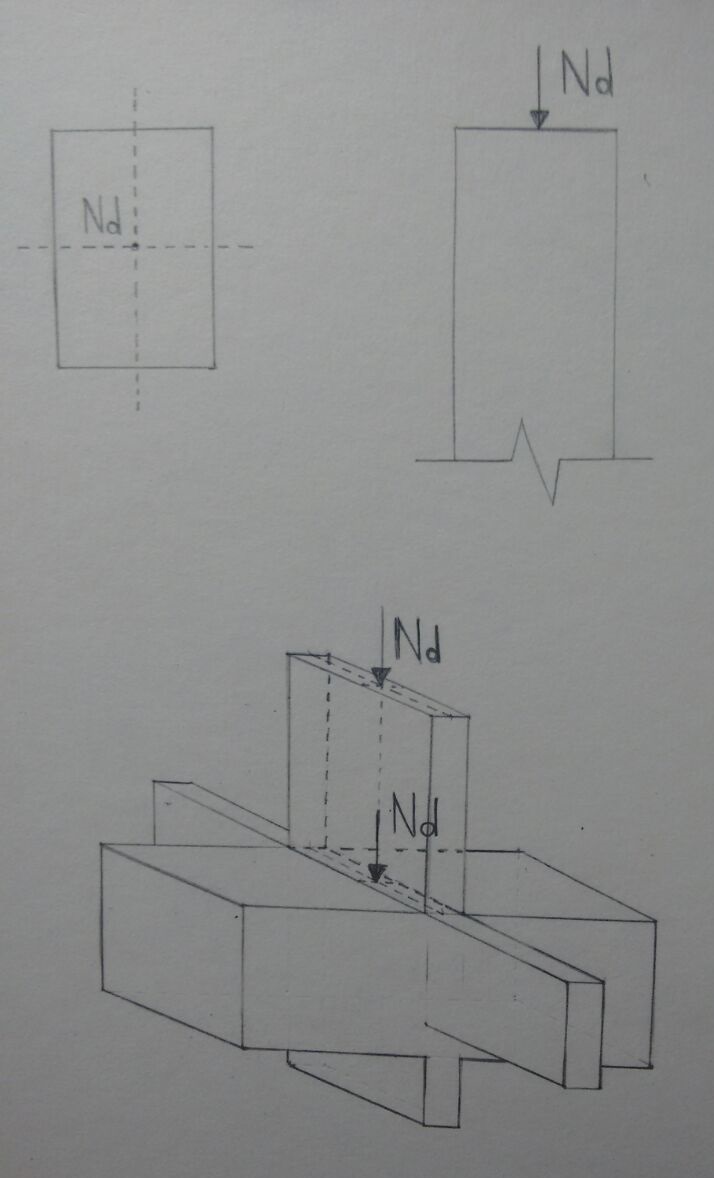 Nd
Nd
Nd
Nd